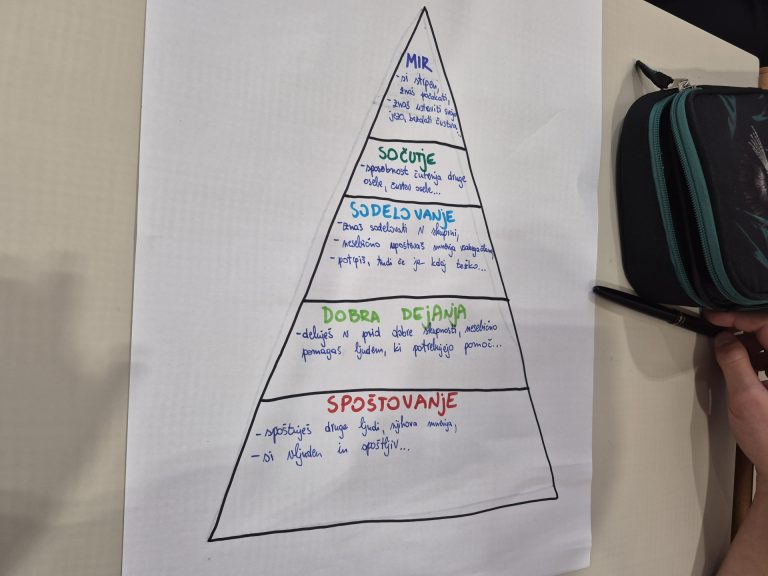 MIR
- si strpen,
znaš počakati,
- znaš ustaviti svojo
jezo, čustva...
SOČUTJE
- sposobnost čutenja druge
osebe, čustev osebe...
SODELOVANJE
- znaš sodelovati v skupini,
- nesebično upoštevaš mnenja vsakega člana,
- potrpiš, tudi če je kdaj težko...
DOBRA DEJANJA
- deluješ v prid dobre skupnosti, nesebično
pomagaš ljudem, ki potrebujejo pomoč...
SPOŠTOVANJE
- spoštuješ druge ljudi, njihova mnenja,
- si vljuden in spoštljiv...